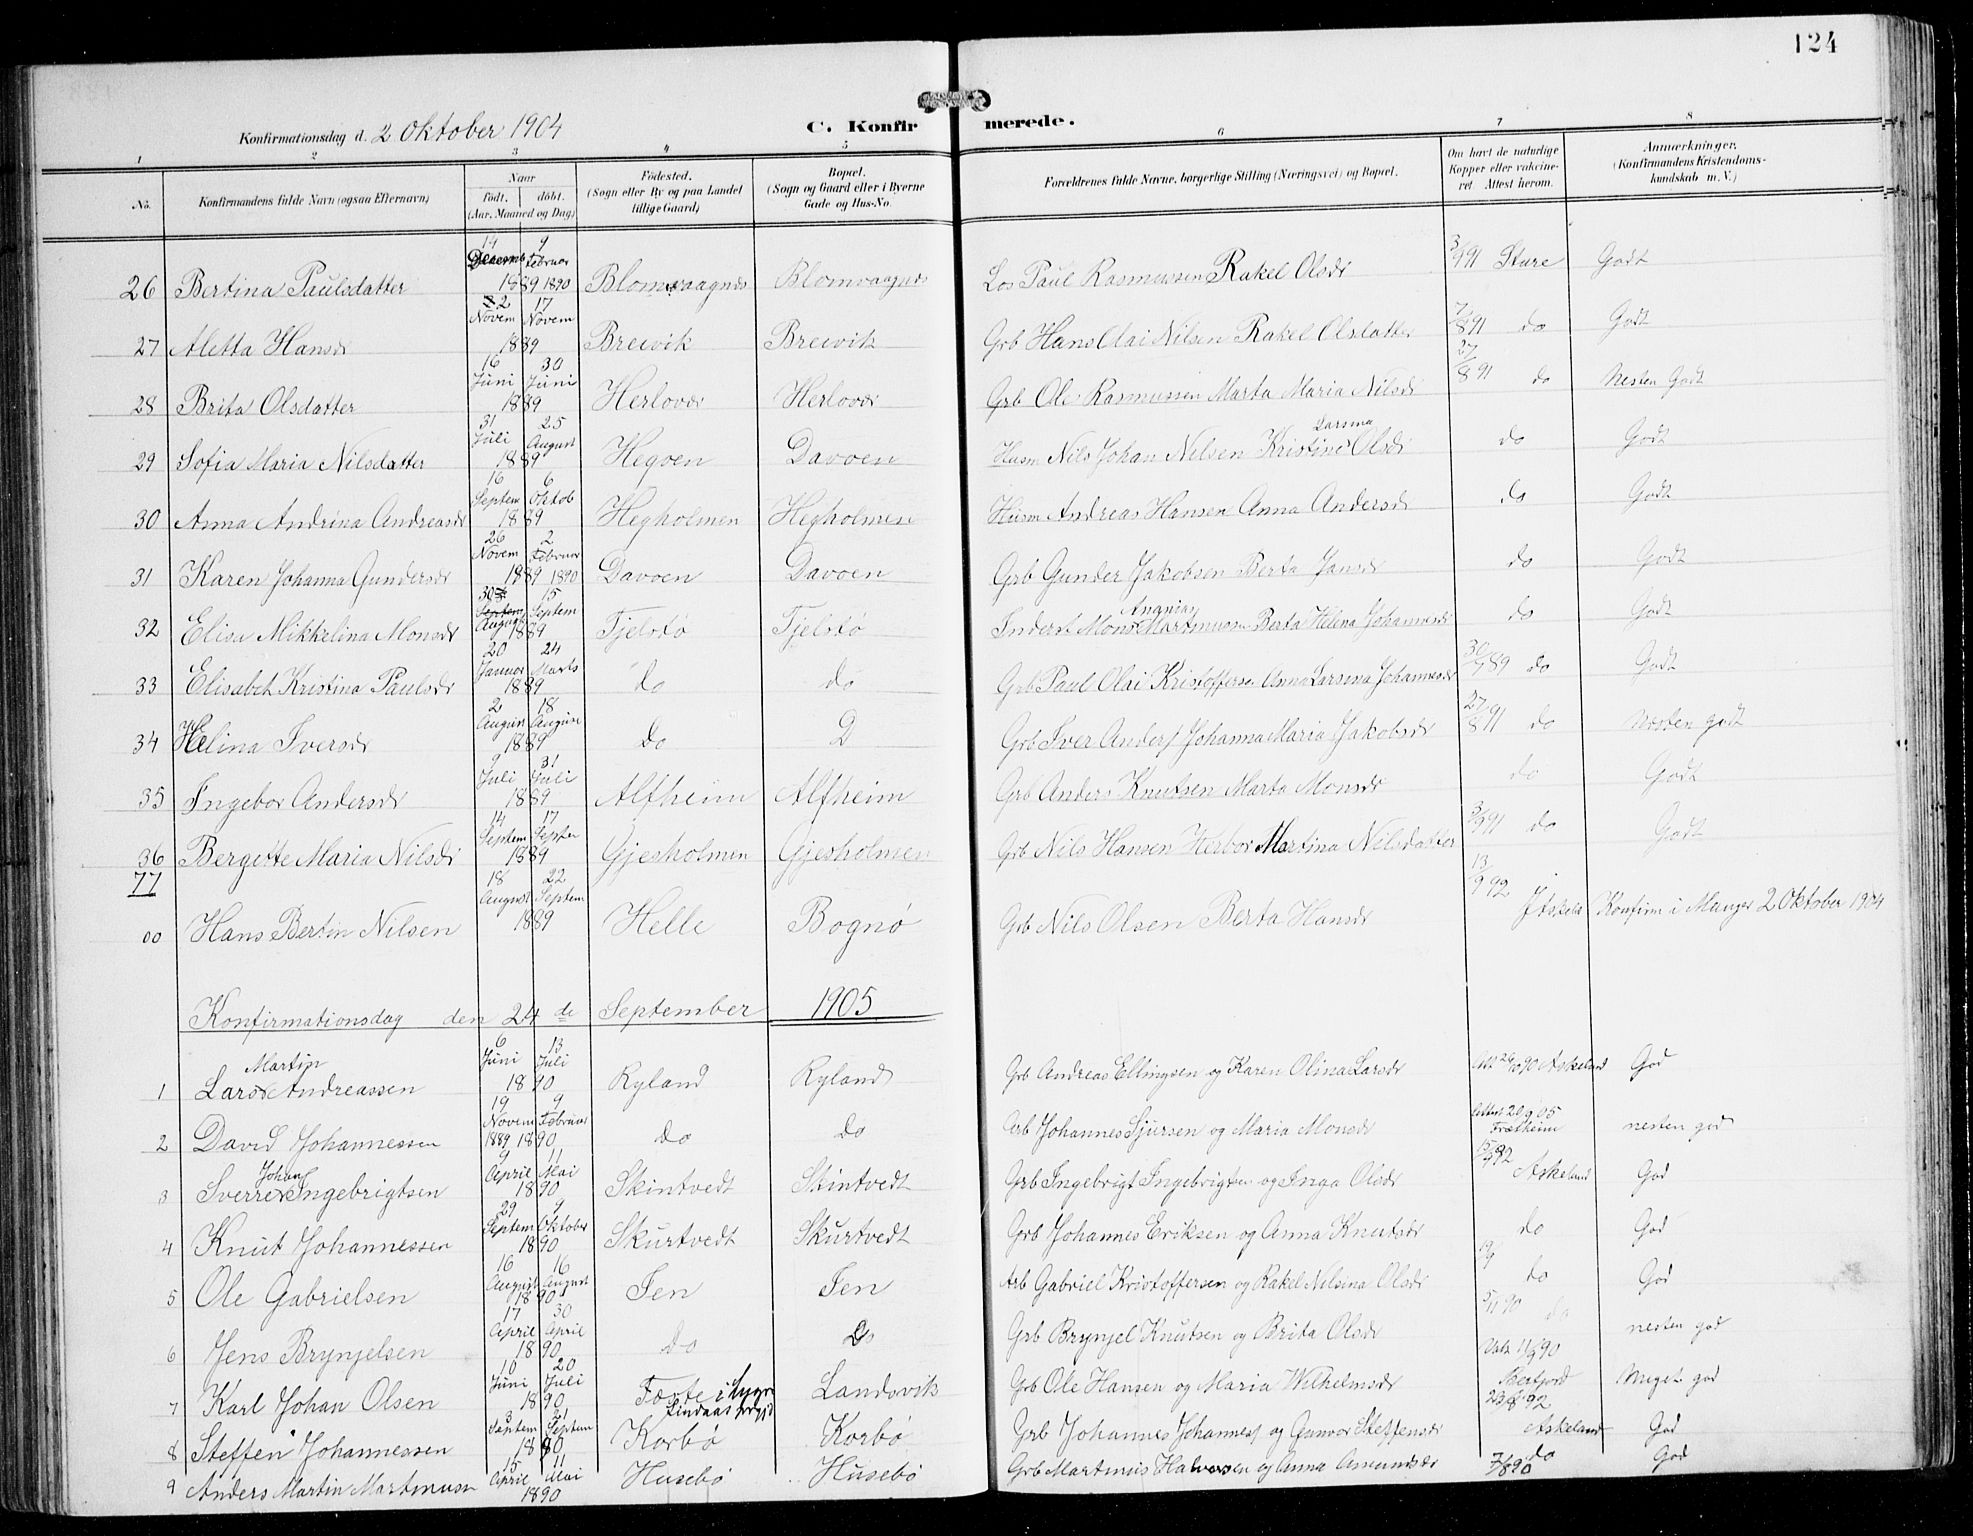 124
Konfirmationsdag d. 2 Oktober 1904
C. Konfirmerede.
1 2 3 4 5 6 7 8
No. Konfirmandens fulde Navn (ogsaa Efternavn) Naar født. døbt. (Aar, Maaned og Dag) Fødested. (Sogn eller By og paa Landet tillige Gaard) Bopæl. (Sogn og Gaard eller i Byerne Gade og Hus-No. Forældrenes fulde Navne, borgerlige Stilling (Næringsvei) og Bopæl. Om havt de naturlige Kopper eller vakcineret Attest herom. Anmærkninger. (Konfirmandens Kristendomskundskab m. V.)
26 Bertina Paulsdatter 14 Decemb 1889 9 Februar 1890 Blomvaagnes Blomvaagnes Los Paul Rasmussen Rakel Olsdr 3/9 91 Sture Godt
27 Aletta Hansdr 2 Novem 17 Novem 1889 Breivik Breivik Grb Hans Olai Nilsen Rakel Olsdatter 7/8 91 do Godt
28 Brita Olsdatter 16 Juni 30 Juni 1889 Herlovær Herlovær Grb Ole Rasmussen Marta Maria Nilsdr 27/8 91 do Nesten Godt
29 Sofia Maria Nilsdatter 31 Juli 25 August 1889 Hegøen Davøen Husm Nils Johan Nilsen Kristine Larsina Olsdr do Godt
30 Anna Andrina Andreasdr 16 Septem 6 Oktob 1889 Hegholmen Hegholmen Husm Andreas Hansen Anna Andersdr do Godt
31 Karen Johanna Gundersdr 26 Novem 1889 2 Februar 1890 Davøen Davøen Grb Gunder Jakobsen Berta Jansdr do Godt
32 Elisa Mikkelina Monsdr 30 Septem August 15 Septem 1889 Fjelstø Fjelstø Inderst Mons Ananias Martinussen Berta Helina Johannesdr do Godt
33 Elisabet Kristina Paulsdr 20 Januar 24 Marts 1889 do do Grb Paul Olai Kristoffersen Anna Larsina Johannesdr 30/7 89 do Godt
34 Helina Iversdr 2 August 18 August 1889 do D Grb Iver Anders Johanna Maria Jakobsdr 27/8 91 do Næsten godt
35 Ingebor Andersdr 9 Juli 31 Juli 1889 Alfheim Alfheim Grb Anders Knutsen Marta Monsdr do Godt
36 Bergette Maria Nilsdr 14 Septem 17 Septem 1889 Gjesholmen Gjesholmen Grb Nils Hansen Herbor Martina Nilsdatter 3/9 91 do Godt
77
00 Hans Bertin Nilsen 18 August 22 Septem 1889 Helle Bognø Grb Nils Olsen Berta Hansdr 13/9 92 J Askela Konfirm i Manger 2 Oktober 1904
Konfirmationsdag den 24 de September 1905
1 Lars Martin Andreassen 6 Juni 13 Juli 1890 Ryland Ryland Grb Andreas Ellingsen og Karen Olina Larsdr Att 24/10 90 Askeland God
2 David Johannessen 19 Novem 1889 9 Februar 1890 do do Grb Johannes Sjursen og Maria Monsdr Attest 20 9 05 Frælheim nesten god
3 Sverre Johan Ingebrigtsen 9 April 11 Mai 1890 Skintvedt Skintvedt Grb Ingebrigt Ingebrigtsen og Inga Olsdr 15/9 92 Askeland God
4 Knut Johannessen 29 Septem 9 Oktober 1890 Skurtvedt Skurtvedt Grb Johannes Eriksen og Anna Knutsdr do God
5 Ole Gabrielsen 16 August 16 August 1890 Fen Fen Grb Gabriel Kristoffersen og Rakel Nilsina Olsdr 19/9 do God
6 Jens Brynjelsen 17 April 30 April 1890 do Do Grb Brynjel Knutsen og Brita Olsdr 5/11 90 do nesten god
7 Karl Johan Olsen 10 Juni 20 Juli 1890 Fæste i Lygre Lindaas prgjd Landsvik Grb Ole Hansen og Maria Wilhelmsdr Vatn 11/9 90 Meget god
8 Steffen Johannessen 3 Septem 21 Septem 1890 Korbø Korbø Grb Johannes Johannes og Gunvor Steffensdr 23/8 92 Askeland God
9 Anders Martin Martinusn 15 April 11 Mai 1890 Husebø Husebø Grb Martinus Halvorsen og Anna Amundsdr 7/8 90 do God